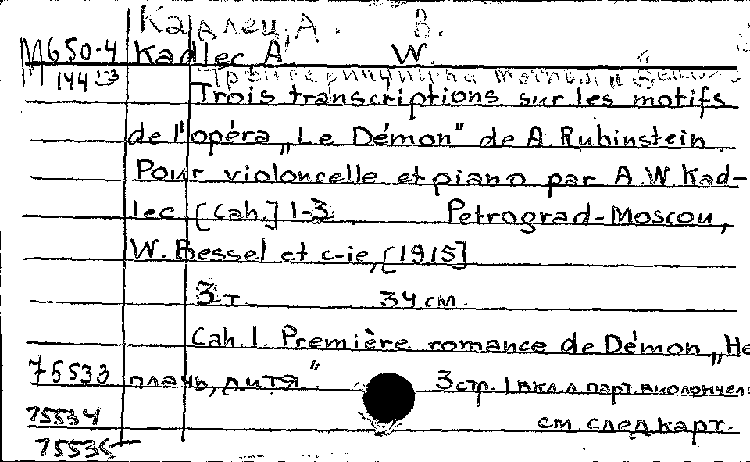 Кадлец, А. В.
М650-4 Kadlec A. W.
М 144 23
Trois transcriptions sur les motifs
de l'opéra „Le Démon" de A. Rubinstein.
Pour violoncelle et piano par A. W. Kad-
lec [Cah.] 1-3 Petrograd-Moscou,
W. Bessel et c-ie, [1915]
3 т. 34 см.
Cah. 1. Première romance de Démon „Не
75533 плачь, дитя" 3 стр. 1 вкл. л парт. виолончел
75534 см след карт.
75535